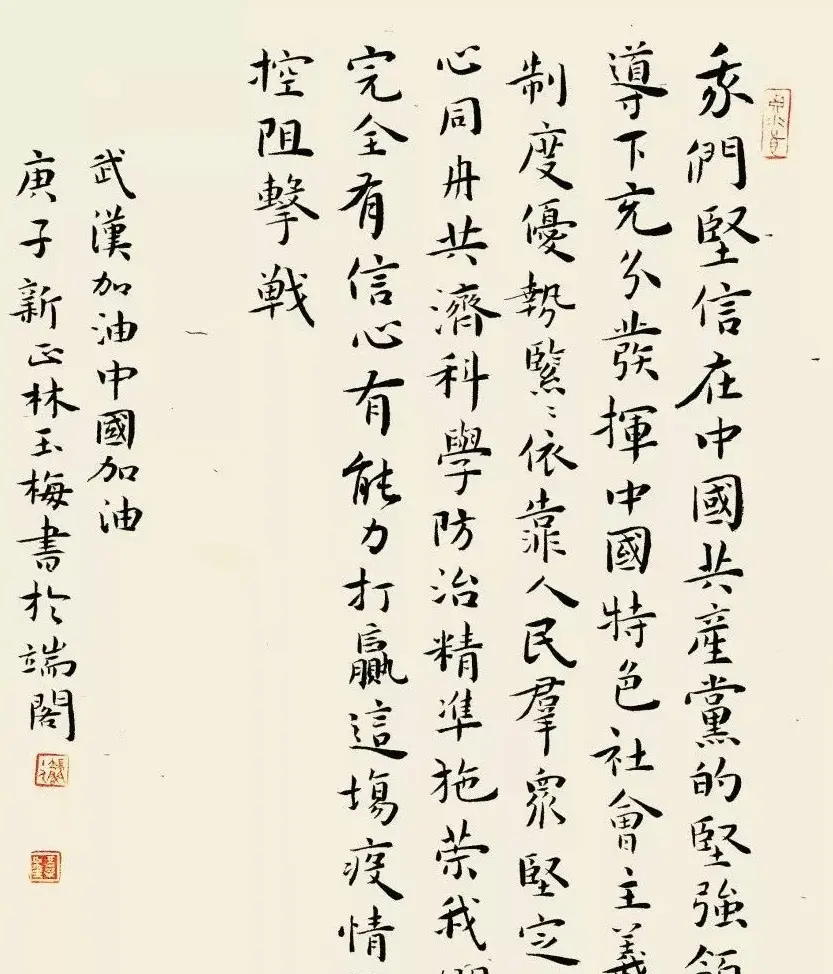 我們堅信在中國共產黨的堅強領
導下充分發揮中國特色社會主義
制度優勢緊〻依靠人民羣眾堅定
心同舟共濟科學防治精準施策我們
完全有信心有能力打贏這場疫情
控阻擊戰
武漢加油中國加油
庚子新正林玉梅書於端閣